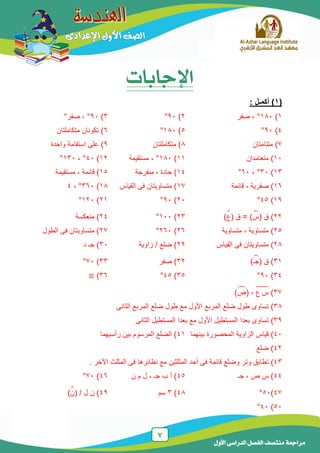 الهندسة
الصف الأول الإعدادى
Al-Azhar Language Institute
معهد لغة المشرق الأزهري
الإجابات
(١) أكمل :
١) ١٨٠° ، صفر ٢) ٩٠° ٣) ٩٠° ، صفر°
٤) ٩٠° ٥) ١٨٠° ٦) تكونان متكاملتان
٧) متتامتان ٨) متكاملتان ٩) على استقامة واحدة
١٠) متعامدان ١١) ١٨٠° ، مستقيمة ١٢) ٤٠° ، ١٣٠°
١٣) ٣٠° ، ٦٠° ١٤) حادة ، منفرجة ١٥) قائمة ، مستقيمة
١٦) صفرية ، قائمة ١٧) متساويتان فى القياس ١٨) ٣٦٠° ، ٤
١٩) ٤٥° ٢٠) ٩٠° ٢١) ١٢٠°
٢٢) ق (س) = ق (ع) ٢٣) ١٠٠° ٢٤) منعكسة
٢٥) متساوية ، متساوية ٢٦) ٢٦٠° ٢٧) متساويتان فى الطول
٢٨) متساويتان فى القياس ٢٩) ضلع / زاوية ٣٠) جـ د
٣١) ق (جـ) ٣٢) صفر ٣٣) ٧٠°
٣٤) ٩٠° ٣٥) ٤٥° ٣٦) ≡
٣٧) س ع ، (ص)
٣٨) تساوى طول ضلع المربع الأول مع طول ضلع المربع الثانى
٣٩) تساوى بعدا المستطيل الأول مع بعدا المستطيل الثانى
٤٠) قياس الزاوية المحصورة بينهما ٤١) الضلع المرسوم بين رأسيهما
٤٢) ضلع
٤٣) تطابق وتر وضلع قائمة فى أحد المثلثين مع نظائرها فى المثلث الآخر .
٤٤) س ص ، جـ ٤٥) أ ب جـ ، ل م ن ٤٦) ٧٠°
٤٧) ٥٠° ٤٨) ٣ سم ٤٩) ن ل / (ن)
٥٠) ٤٠°
٧
مراجعة منتصف الفصل الدراسى الأول